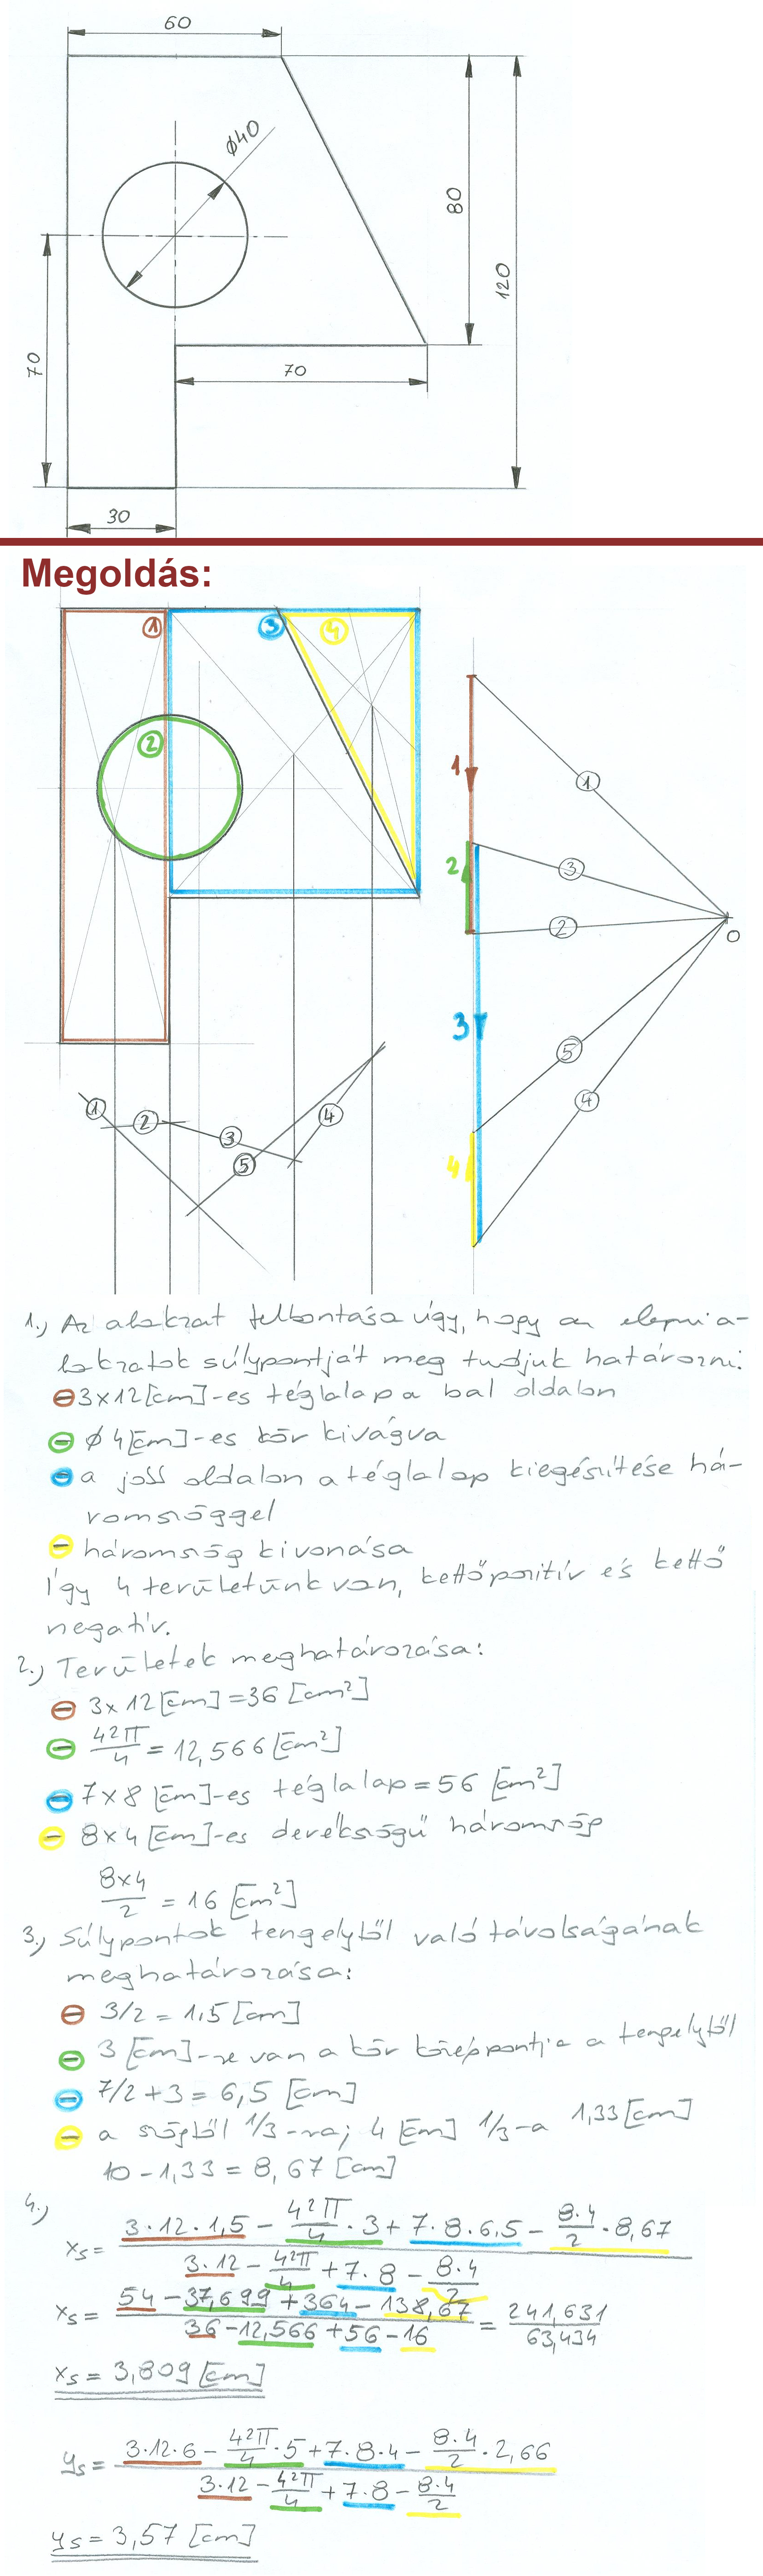 60
ϕ40
80
120
70
70
30
Megoldás:
1
3
4
2
1
1
2
3
2
O
3
5
4
4
1
2
3
4
5
1.) Az alakzat felbontása úgy, hogy az elemi a-
lakzatok súlypontját meg tudjuk határozni:
3x12[cm]-es téglalap a bal oldalon
ϕ4[cm]-es kör kivágva
a jobb oldalon a téglalap kiegészítése há-
romszöggel
háromszög kivonása
Így 4 területünk van, kettő pozitív és kettő
negatív.
2.) Területek meghatározása:
3x12[cm]=36[cm²]
4²π/4 = 12,566[cm²]
7x8[cm]-es téglalap = 56 [cm²]
8x4[cm]-es derékszögű háromszög
8x4/2 = 16 [cm²]
3.) Súlypontok tengelytől való távolságának
meghatározása:
3/2 = 1,5 [cm]
3 [cm]-re van a kör középpontja a tengelytől
7/2 + 3 = 6,5 [cm]
a szögtől 1/3-ra; 4 [cm] 1/3-a 1,33[cm]
10 - 1,33 = 8,67 [cm]
4.)
xs = (3·12·1,5 - 4²π/4·3 + 7·8·6,5 - 8·4/2·8,67) / (3·12 - 4²π/4 + 7·8 - 8·4/2)
xs = (54 - 37,699 + 364 - 138,67) / (36 - 12,566 + 56 - 16) = 241,631 / 63,434
xs = 3,809 [cm]
ys = (3·12·6 - 4²π/4·5 + 7·8·4 - 8·4/2·2,66) / (3·12 - 4²π/4 + 7·8 - 8·4/2)
ys = 3,57 [cm]